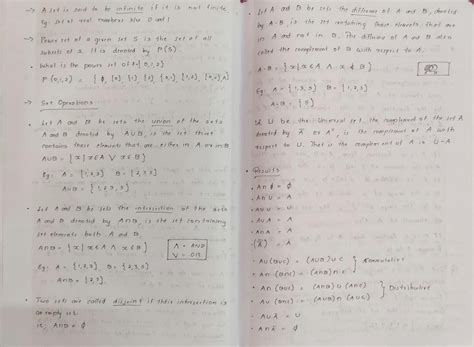 → A set is said to be infinite if it is not finite
Eg: Set of real numbers b/w 0 and 1
→ Power set of a given set S is the set of all
subsets of S. It is denoted by P(S)
• What is the power set of {0,1,2}
P(0,1,2) = { ϕ, {0}, {1}, {2}, {0,1}, {1,2}, {0,2}
→ Set Operations
• Let A and B be sets the union of the sets
A and B denoted by A∪B, is the set those
contains those elements that are either in A or in B
A∪B = {x | x∈A ∨ x∈B}
Eg: A = {1,2,3} B = {2,3,5}
A∪B =
• Let A and B be sets the intersection of the sets
A and B denoted by A∩B, is the set containing
set elements both A and B.
A∩B = {x | x∈A ∧ x∈B}
∧ = AND
∨ = OR
Eg: A = {1,2,3} B = {2,3,5}
A∩B = {2,3}
• Two sets are called disjoint if their intersection is
an empty set.
ie; A∩B = ϕ
• Let A and B be sets the difference of A and B, denoted
by A-B is the set containing those elements that are
in A and not in B. The difference of A and B also
called the complement of B with respect to A.
A-B = {x | x∈A ∧ x∉B}
Eg: A = {1,3,5} B = {1,2,3}
A-B = {5}
• Let U be the Universal set, the complement of the set A
denoted by Ā or Aᶜ, is the complement of A with
respect to U. That is the complement of A is U-A
• Results
• A∩ϕ = ϕ
• A∩U = A
• A∪U = U
• A∪A = A
• A∩A = A
• A∪(B∪C) = (A∪B)∪C
• A∩(B∩C) = (A∩B)∩C
• A∩(B∪C) = (A∩B)∪(A∩C)
Distributive
• A∪(B∩C) = (A∪B)∩(A∪C)
• A∪Ā = U
• A∩Ā = ϕ